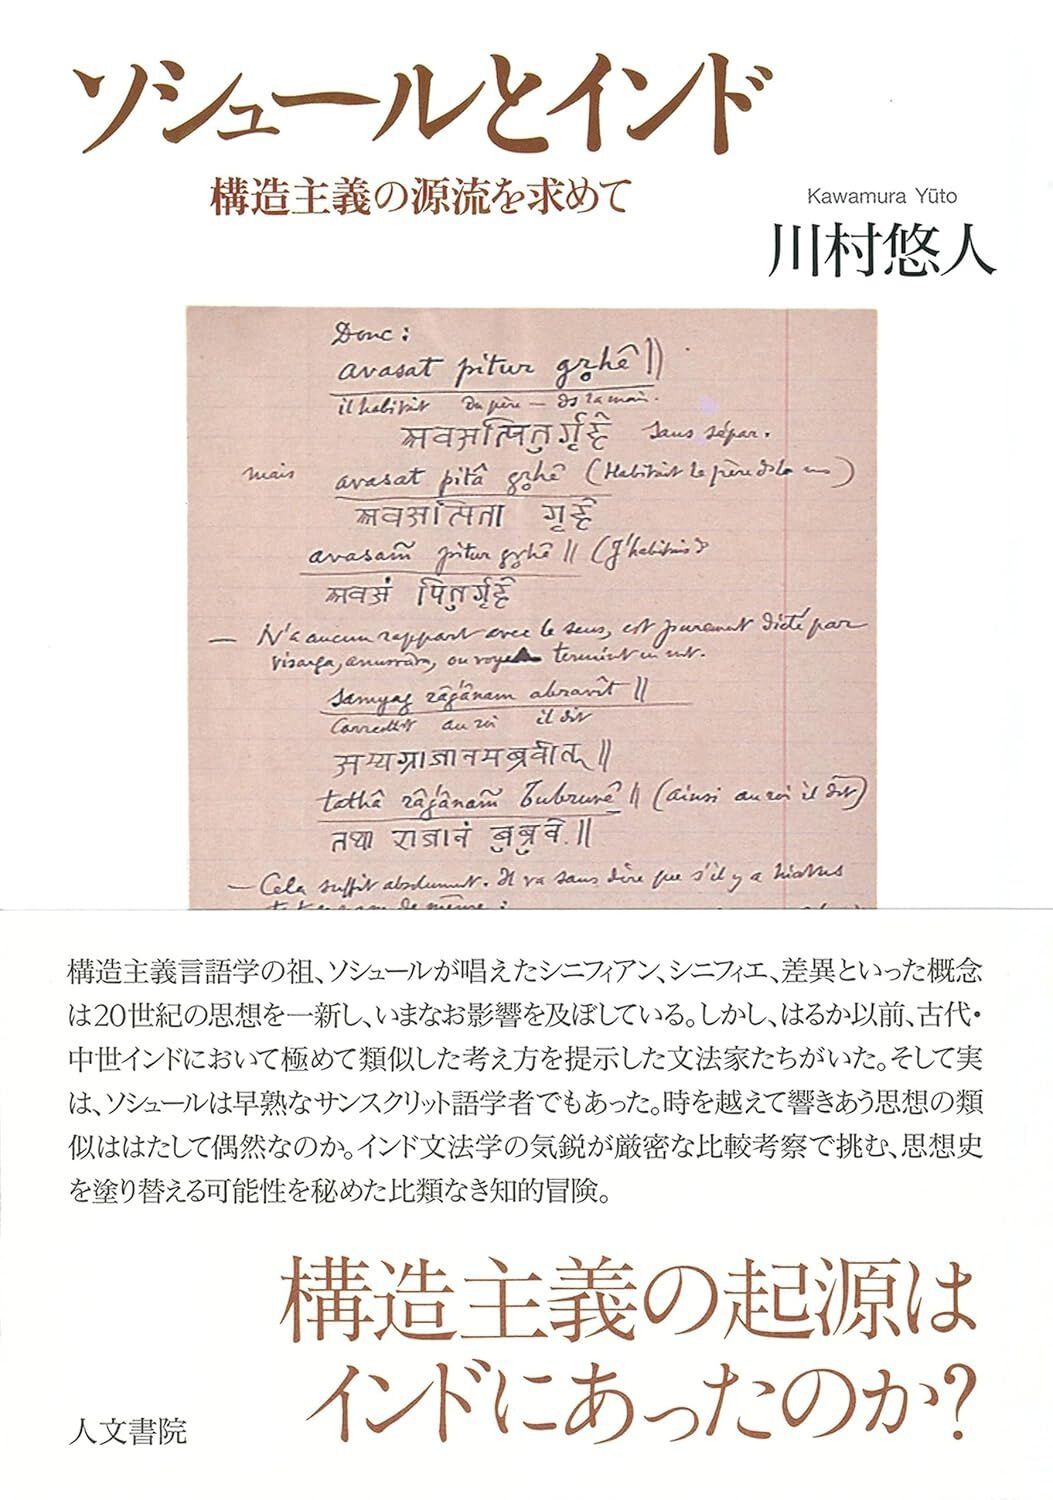 ソシュールとインド
構造主義の源流を求めて
Kawamura Yūto
川村悠人
Donc :
avasat pitur gr̥hê ||
il habitait du père — ds la mais.
अवसत्पितुर्गृहे sans sépar.
mais avasat pitâ gr̥hê (Habitait le père ds la
अवसत्पिता गृहे
avasam̃ pitur gr̥hê || (J'habitais
अवसं पितुर्गृहे
— N'a aucun rapport avec le sens, est purement dicté par
visarga, anusvâra, ou voye
samyag râǵânam abravît ||
au roi il dit
सम्यग्राजानमब्रवीत् ||
tathâ râǵânam̃ bubruvê || (ainsi au roi il dit)
तथा राजानं बुब्रुवे. ||
— Cela suffit absolument. Il va sans dire que s'il y a hiatus
de même :
構造主義言語学の祖、ソシュールが唱えたシニフィアン、シニフィエ、差異といった概念
は20世紀の思想を一新し、いまなお影響を及ぼしている。しかし、はるか以前、古代・
中世インドにおいて極めて類似した考え方を提示した文法家たちがいた。そして実
は、ソシュールは早熟なサンスクリット語学者でもあった。時を越えて響きあう思想の類
似ははたして偶然なのか。インド文法学の気鋭が厳密な比較考察で挑む、思想史
を塗り替える可能性を秘めた比類なき知的冒険。
構造主義の起源は
インドにあったのか?
人文書院